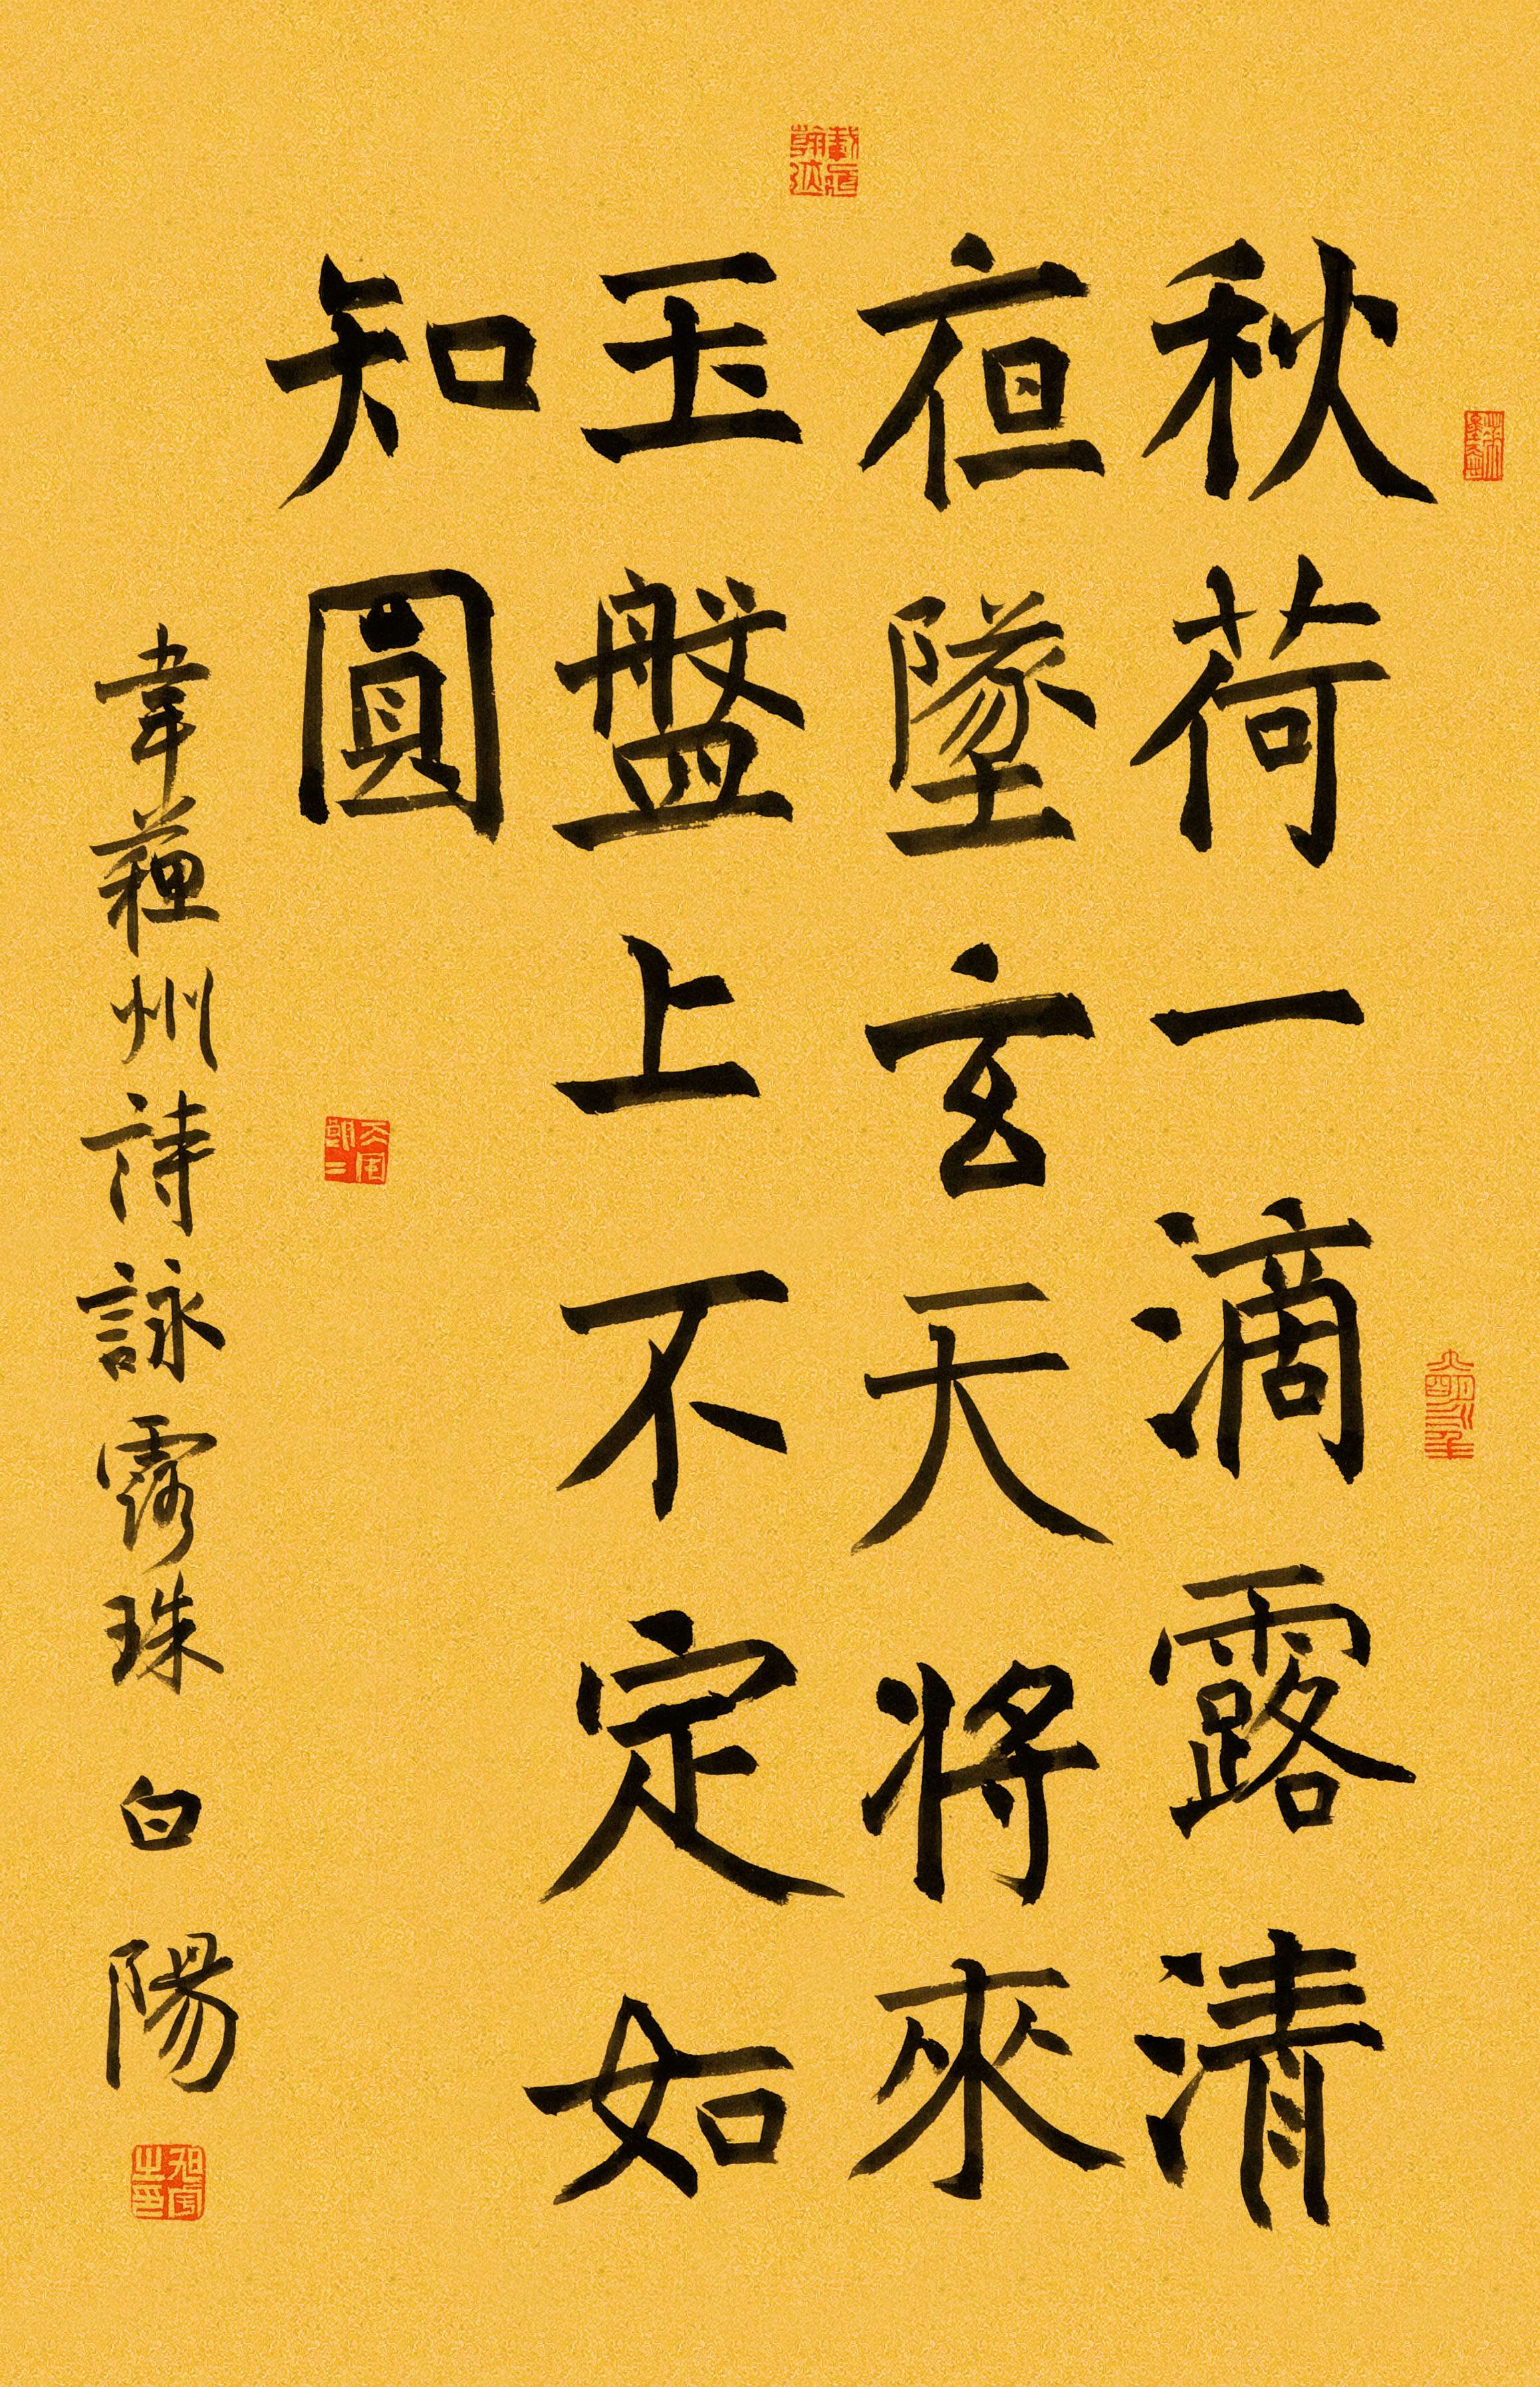 秋荷一滴露清
夜墜玄天將來
玉盤上不定如
知圓
韋蘓州詩詠露珠 白陽